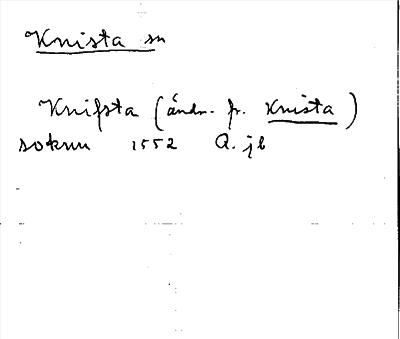 Knista sn
Knifsta (ändr. fr. Knista)
soknn 1552 Q. jb